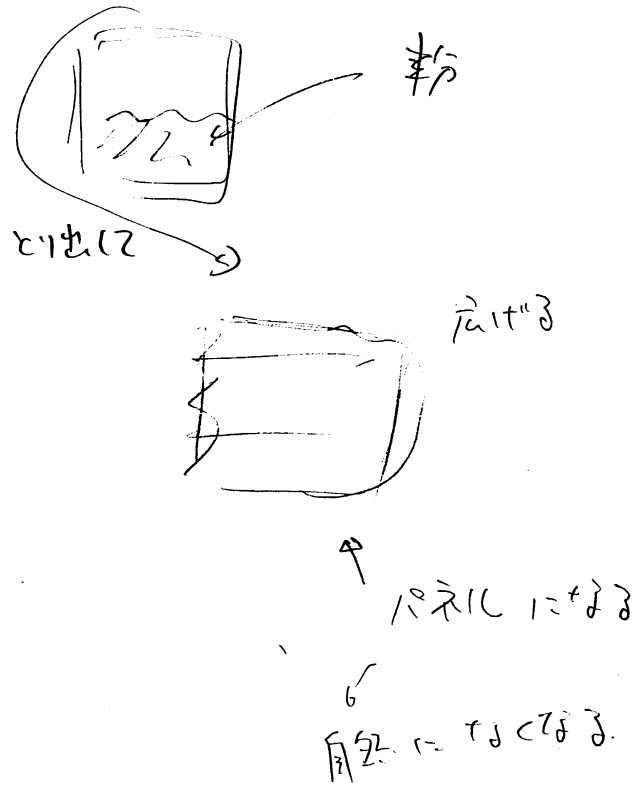 粉
とり出して
広げる
パネルになる
自然になくなる.